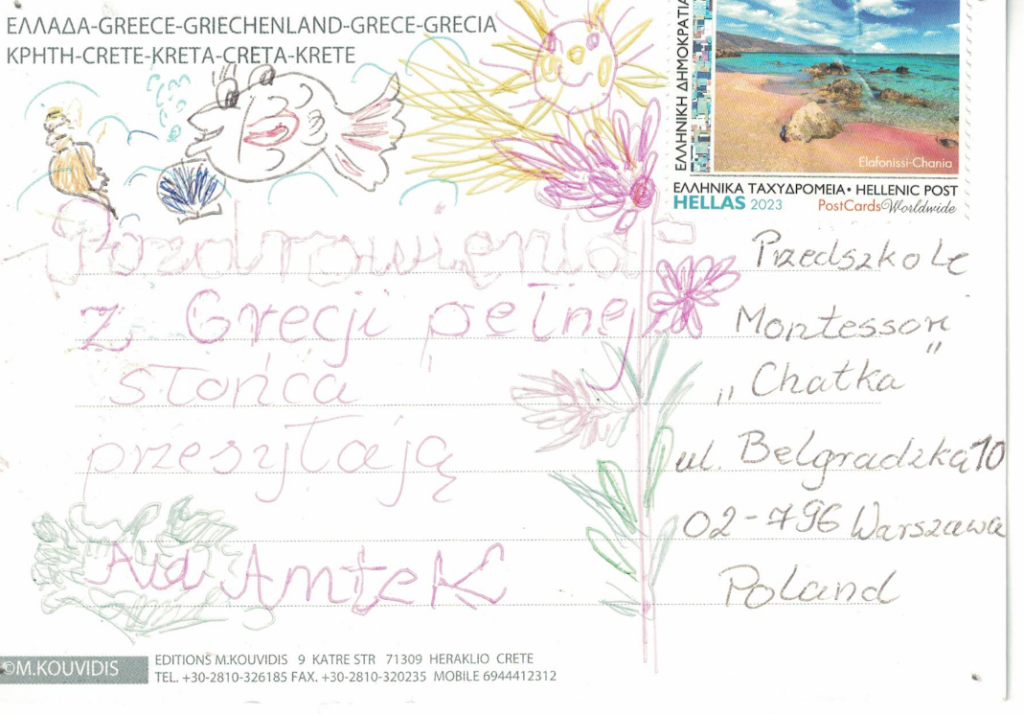 ΕΛΛΑΔΑ-GREECE-GRIECHENLAND-GRECE-GRECIA
ΚΡΗΤΗ-CRETE-KRETA-CRETA-KRETE
ΕΛΛΗΝΙΚΗ ΔΗΜΟΚΡΑΤΙΑ
Elafonissi-Chania
ΕΛΛΗΝΙΚΑ ΤΑΧΥΔΡΟΜΕΙΑ • HELLENIC POST
HELLAS 2023 PostCardsWorldwide
Pozdrowienia
z Grecji pełnej
słońca
przesyłają
Antek
Przedszkole
Montessori
„Chatka”
ul. Belgradzka 10
02-796 Warszawa
Poland
©M.KOUVIDIS
EDITIONS M.KOUVIDIS 9 KATRE STR 71309 HERAKLIO CRETE
TEL. +30-2810-326185 FAX. +30-2810-320235 MOBILE 6944412312